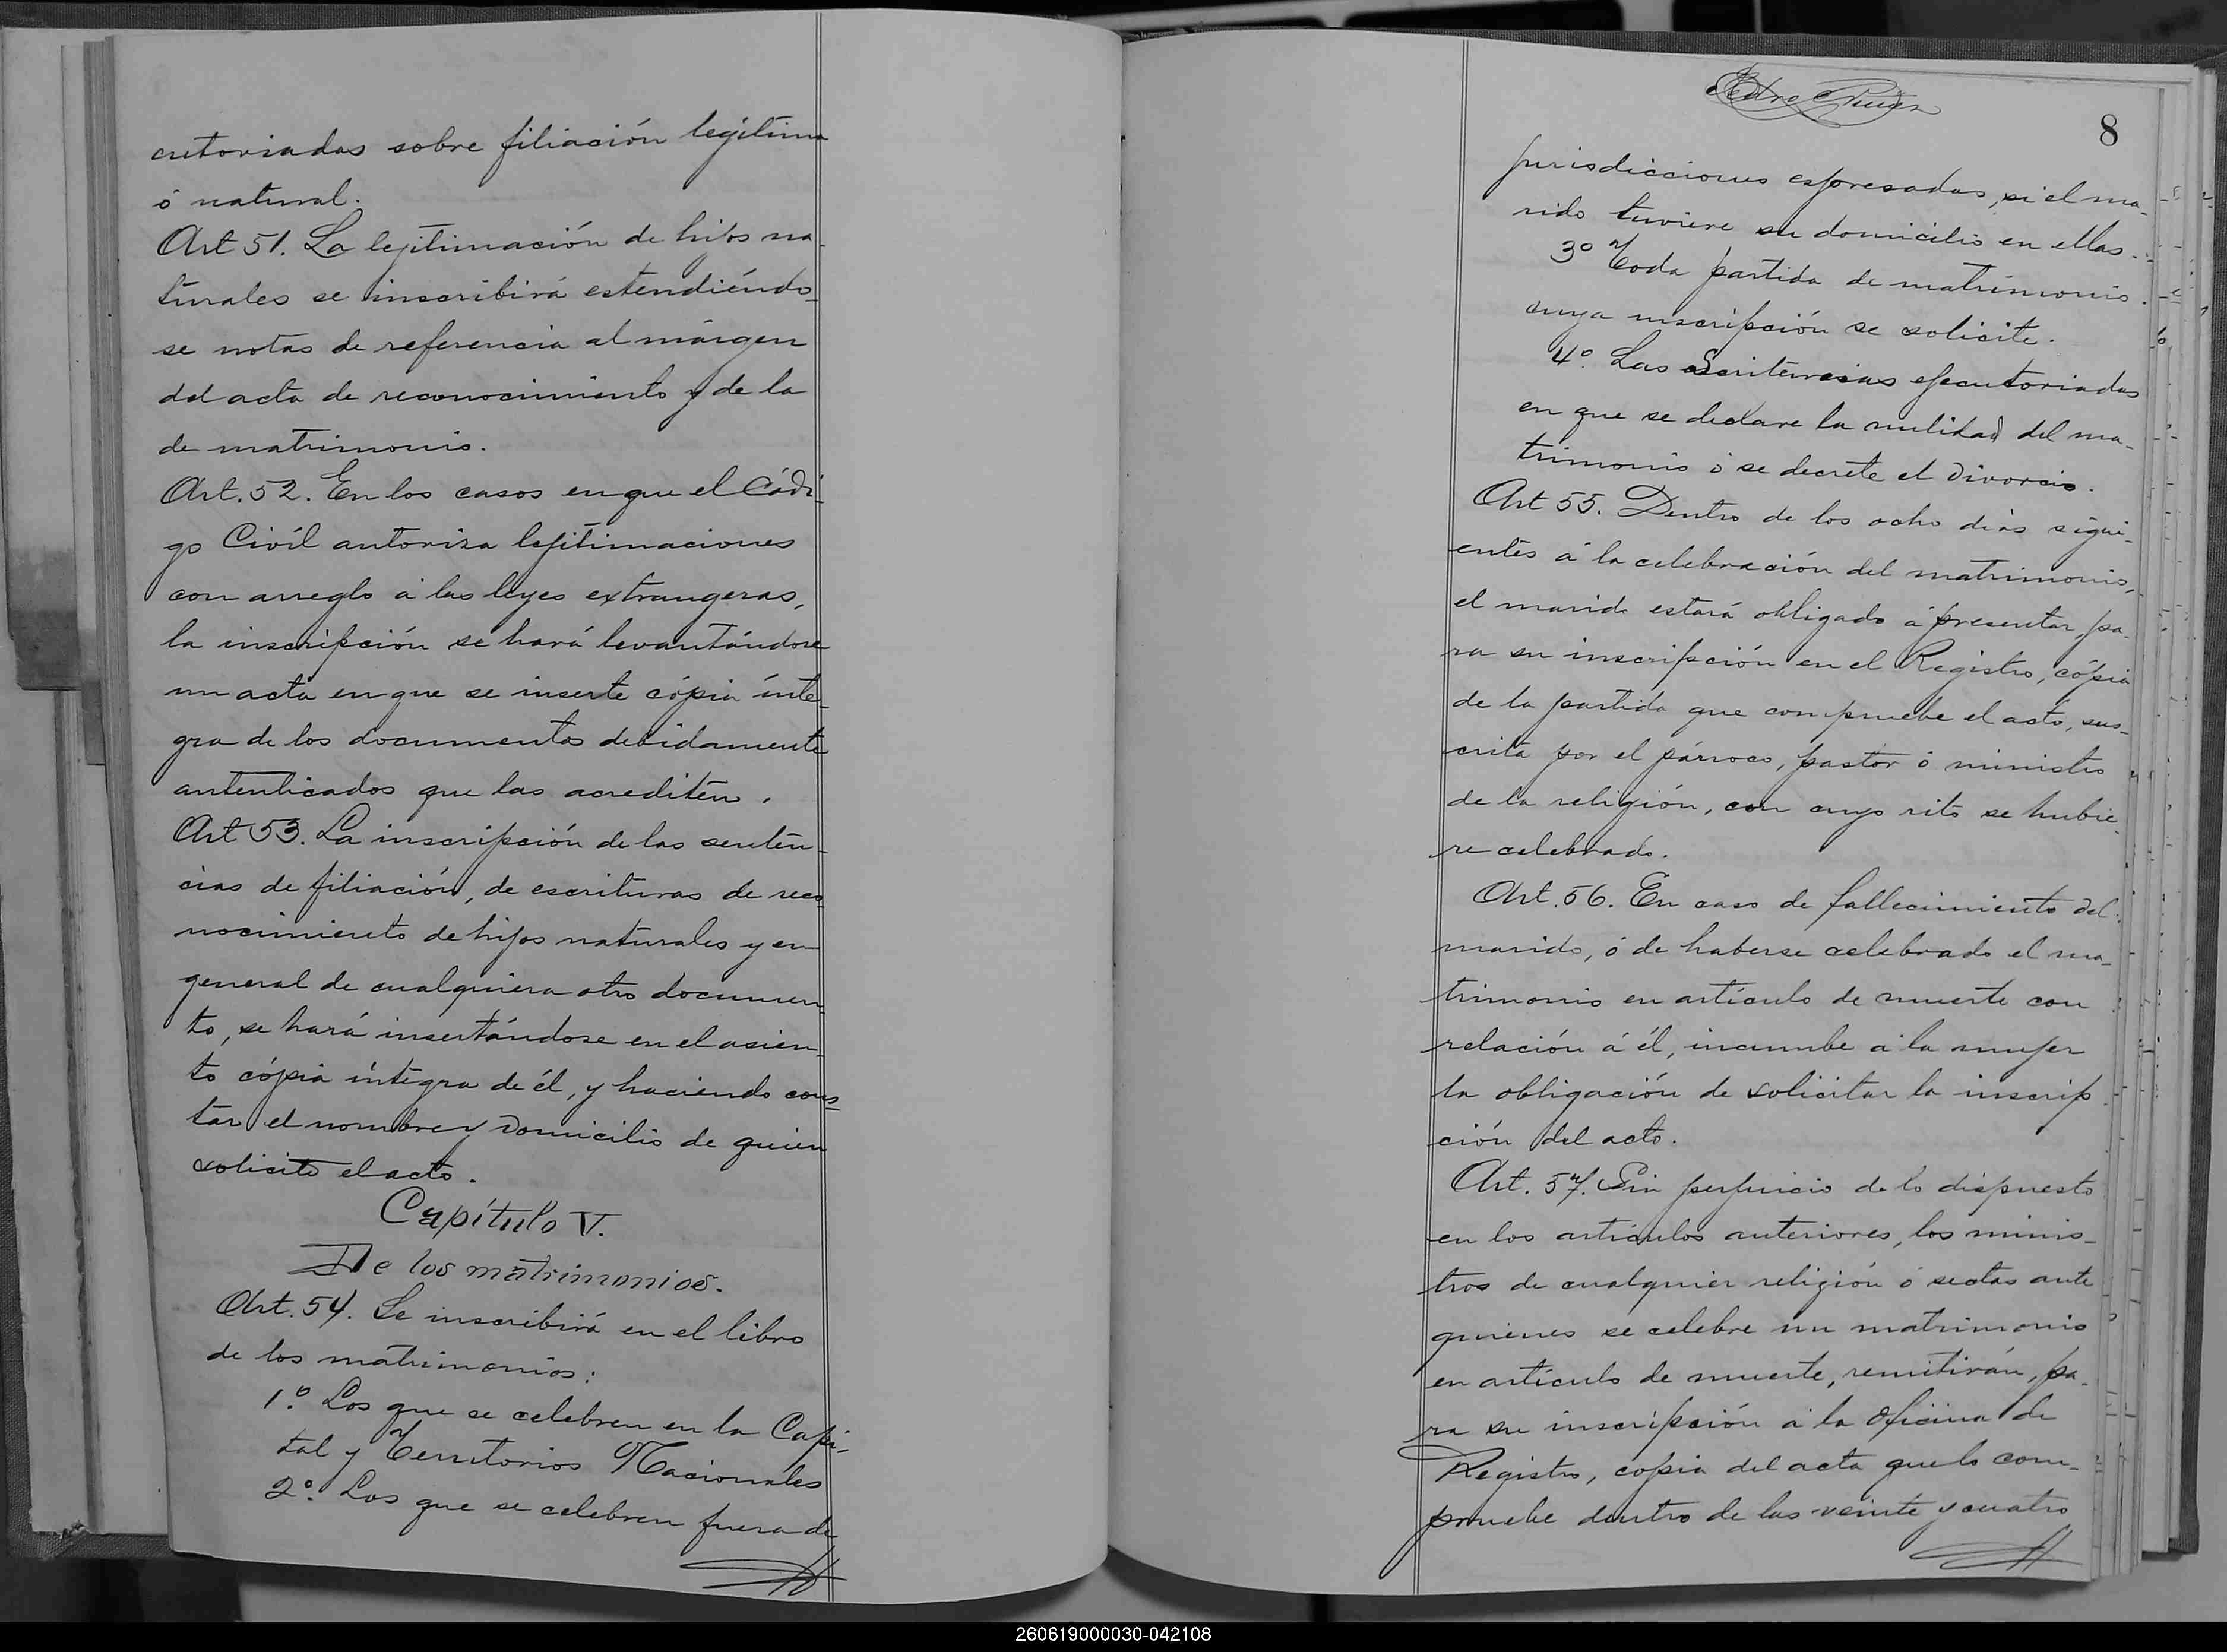 cutoriadas sobre filiación legítima
ó natural.
Art 51. La lejitimación de hijos na-
turales se inscribirá estendiéndo-
se notas de referencia al márgen
del acta de reconocimiento y de la
de matrimonio.
Art. 52. En los casos en que el Códi-
go Civíl autoriza lejitimaciones
con arreglo á las leyes extrangeras,
la inscripción se hará levantándose
un acta en que se inserte cópia ínte-
gra de los documentos debidamente
autenticados que las acrediten.
Art 53. La inscripción de las senten-
cias de filiación, de escrituras de reco-
nocimiento de hijos naturales y en
general de cualquiera otro documen-
to, se hará insertándose en el asien-
to cópia íntegra de él, y haciendo cons-
tar el nombre y domicilio de quien
solicite el acto.
Capítulo V.
De los matrimonios.
Art. 54. Se inscribirá en el libro
de los matrimonios:
1.º Los que se celebren en la Capi-
tal y Territorios Nacionales
2.º Los que se celebren fuera de
8
jurisdicciones espresadas, si el ma-
rido tuviere su domicilio en ellas.
3º Toda partida de matrimonio
cuya inscripción se solicite.
4º. Las Sentencias ejecutoriadas
en que se declare la nulidad del ma-
trimonio ó se decrete el divorcio.
Art 55. Dentro de los ocho dias sigui-
entes á la celebración del matrimonio,
el marido estará obligado á presentar, pa-
ra su inscripción en el Registro, cópia
de la partida que compruebe el acto, sus-
crita por el párroco, pastor ó ministro
de la religión, con cuyo rito se hubie-
re celebrado.
Art. 56. En caso de fallecimiento del
marido, ó de haberse celebrado el ma-
trimonio en artículo de muerte con
relación á él, incumbe á la mujer
la obligación de solicitar la inscrip
ción del acto.
Art. 57. Sin perjuicio de lo dispuesto
en los artículos anteriores, los minis-
tros de cualquier religión ó sectas ante
quienes se celebre un matrimonio
en artículo de muerte, remitirán, pa-
ra su inscripción á la Oficina de
Registro, copia del acta que lo com-
pruebe dentro de las veinte y cuatro
260619000030-042108